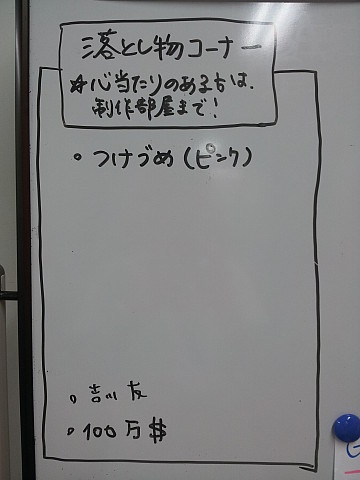 落とし物コーナー
☆心当たりのある方は、
制作部屋まで!
・つけづめ(ピンク)
・吉川 友
・100万$